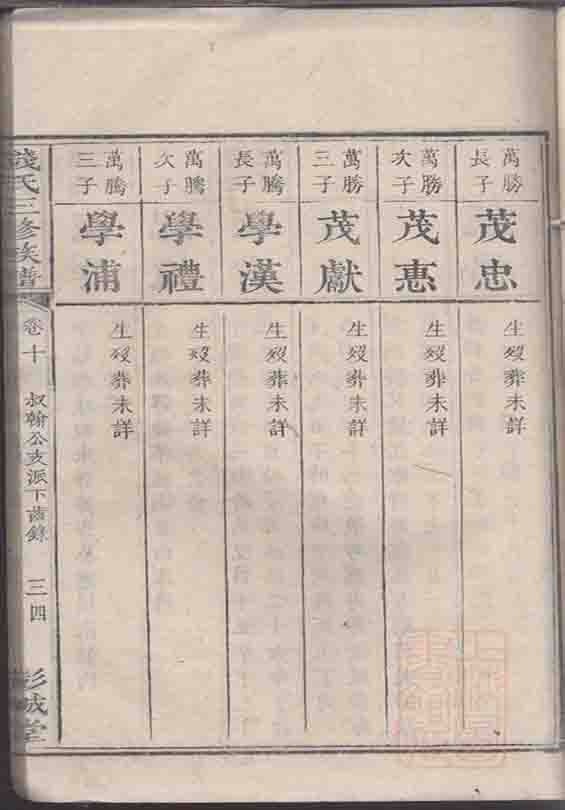 萬勝長子
茂忠
生歿葬未詳
萬勝次子
茂惠
生歿葬未詳
萬勝三子
茂獻
生歿葬未詳
萬騰長子
學漢
生歿葬未詳
萬騰次子
學禮
生歿葬未詳
萬騰三子
學浦
生歿葬未詳
錢氏三修族譜
卷十
叔翰公支派下齒錄
三四
彭城堂